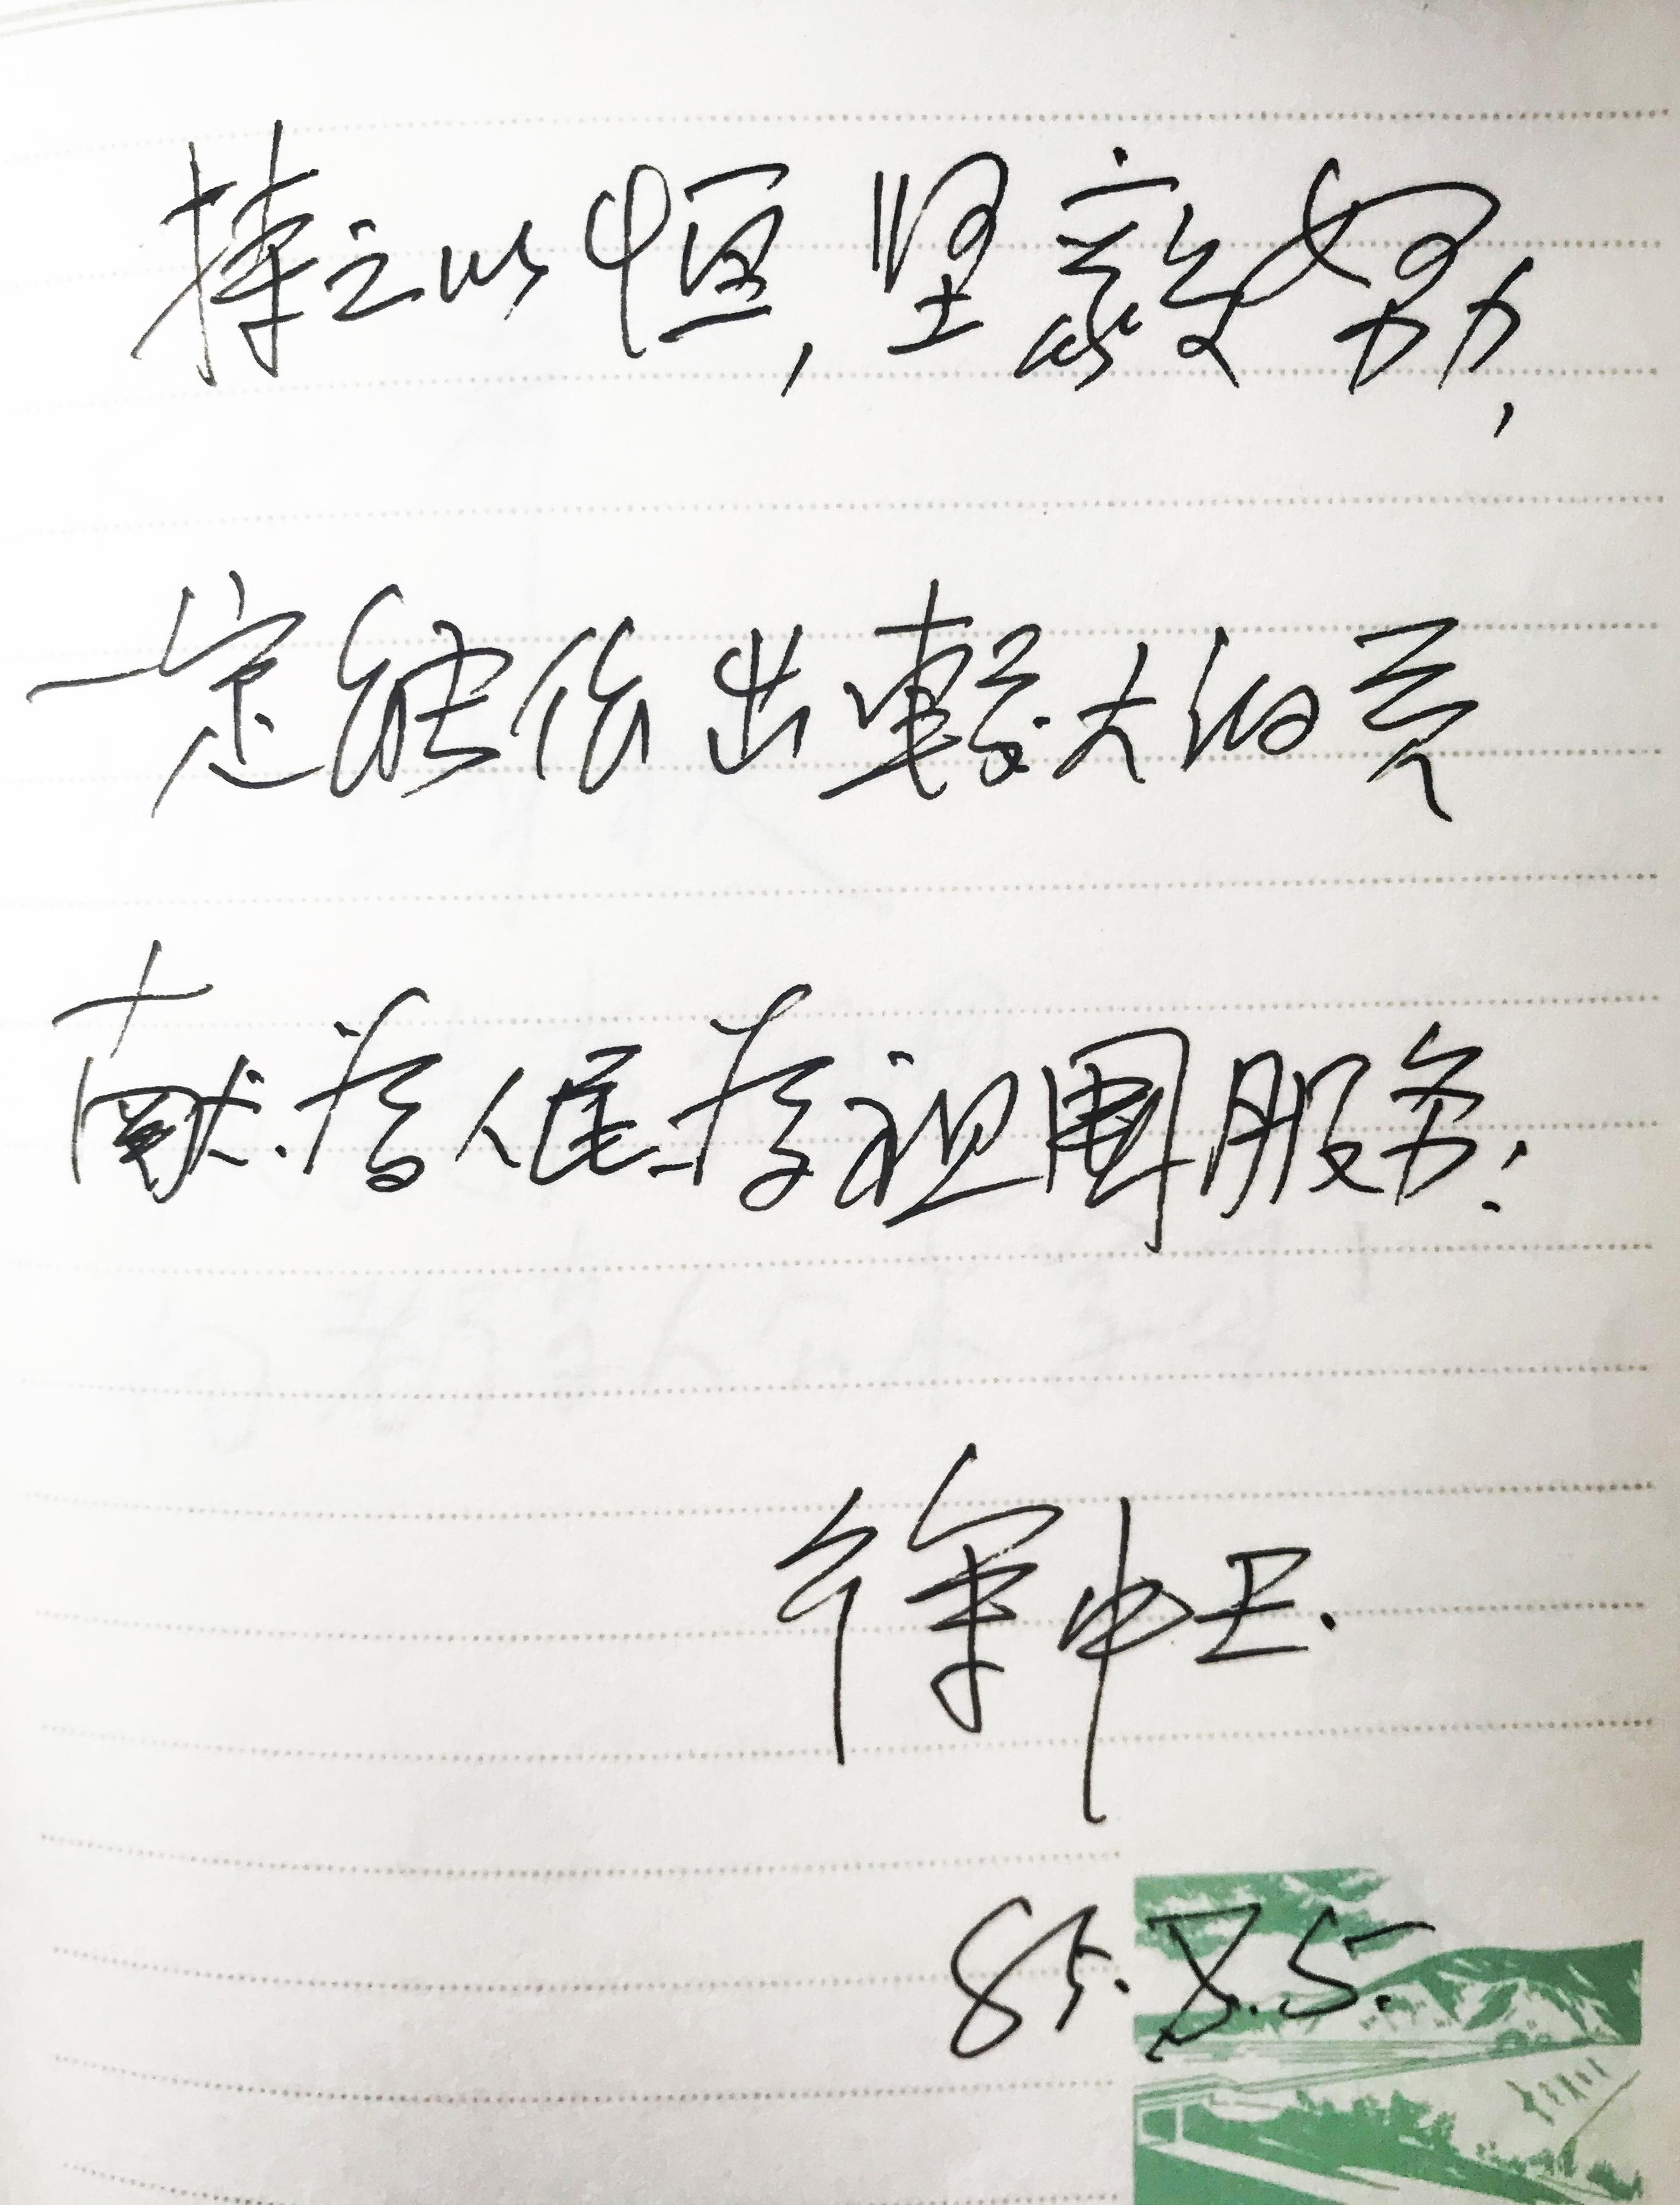 持之以恒，坚毅努力，
一定能作出較大的贡
献.为人民.为祖国服务:
徐中玉.
85.8.5.